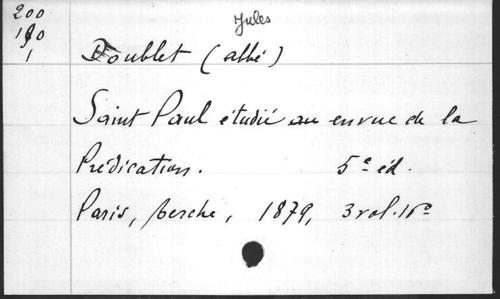 200
190
1
Jules
Doublet (abbé)
Saint Paul étudié en vue de la
Prédication. 5e éd.
Paris, berche, 1879, 3 vol. 16o